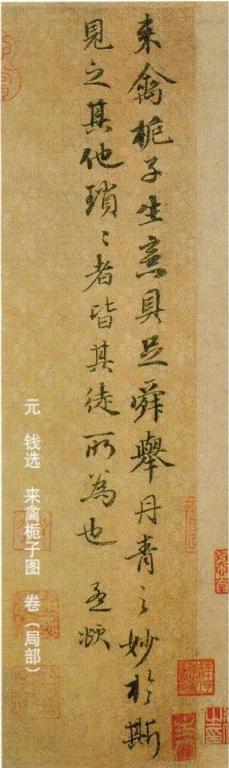 来禽栀子生意具足舜举丹青之妙於斯
見之其他瑣〻者皆其徒所為也 孟頫
元 钱选 来禽栀子图 卷（局部）